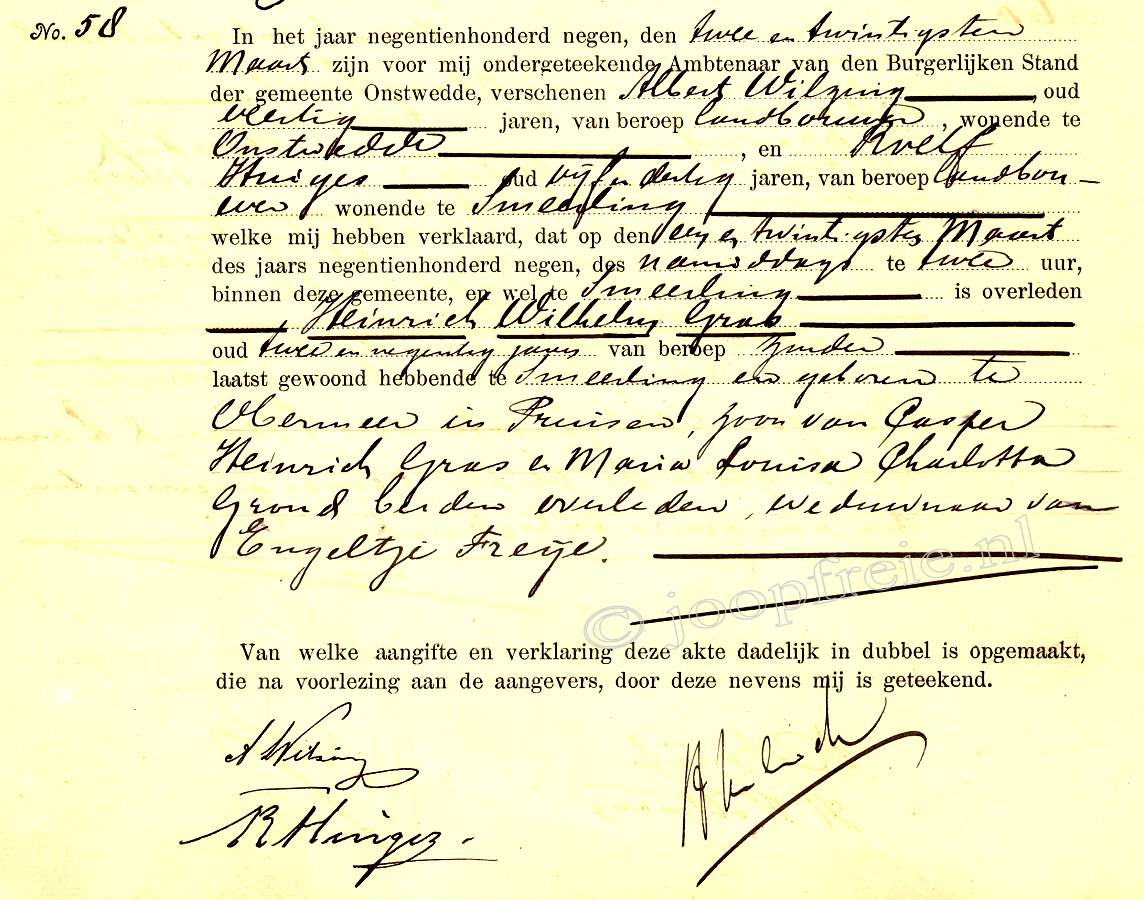 No. 58
In het jaar negentienhonderd negen, den twee en twintigsten
Maart zijn voor mij ondergeteekende Ambtenaar van den Burgerlijken Stand
der gemeente Onstwedde, verschenen Albert Wilzing, oud
veertig jaren, van beroep landbouwer, wonende te
Onstwedde, en Roelf
Huiges oud vijf en dertig jaren, van beroep landbou-
wer wonende te Smeerling
welke mij hebben verklaard, dat op den een en twintigsten Maart
des jaars negentienhonderd negen, des namiddags te twee uur,
binnen deze gemeente, en wel te Smeerling is overleden
Heinrich Wilhelm Gras
oud twee en negentig jaren van beroep zonder
laatst gewoond hebbende te Smeerling en geboren te
Obermeer in Pruisen, zoon van Casper
Heinrich Gras en Maria Louisa Charlotta
Grond beiden overleden, weduwnaar van
Engeltje Freije.
© joopfreie.nl
Van welke aangifte en verklaring deze akte dadelijk in dubbel is opgemaakt,
die na voorlezing aan de aangevers, door deze nevens mij is geteekend.
A Wilzing
R Huiges